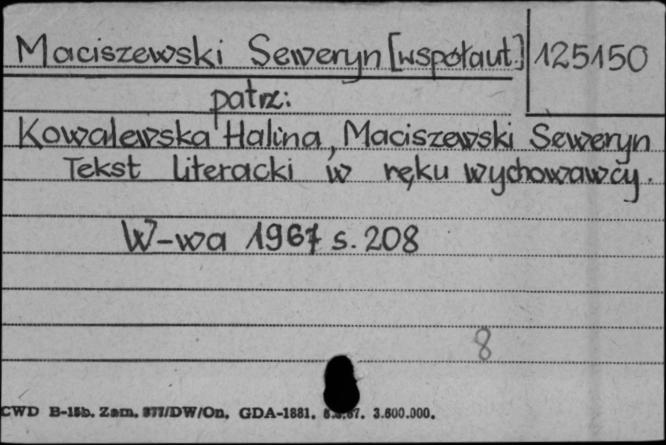 Maciszewski Seweryn [współaut.] 125150
patrz:
Kowalewska Halina, Maciszewski Seweryn
Tekst literacki w ręku wychowawcy.
W-wa 1967 s. 208
8
CWD B-15b. Zam. 377/DW/On, GDA-1881. 3.600.000.